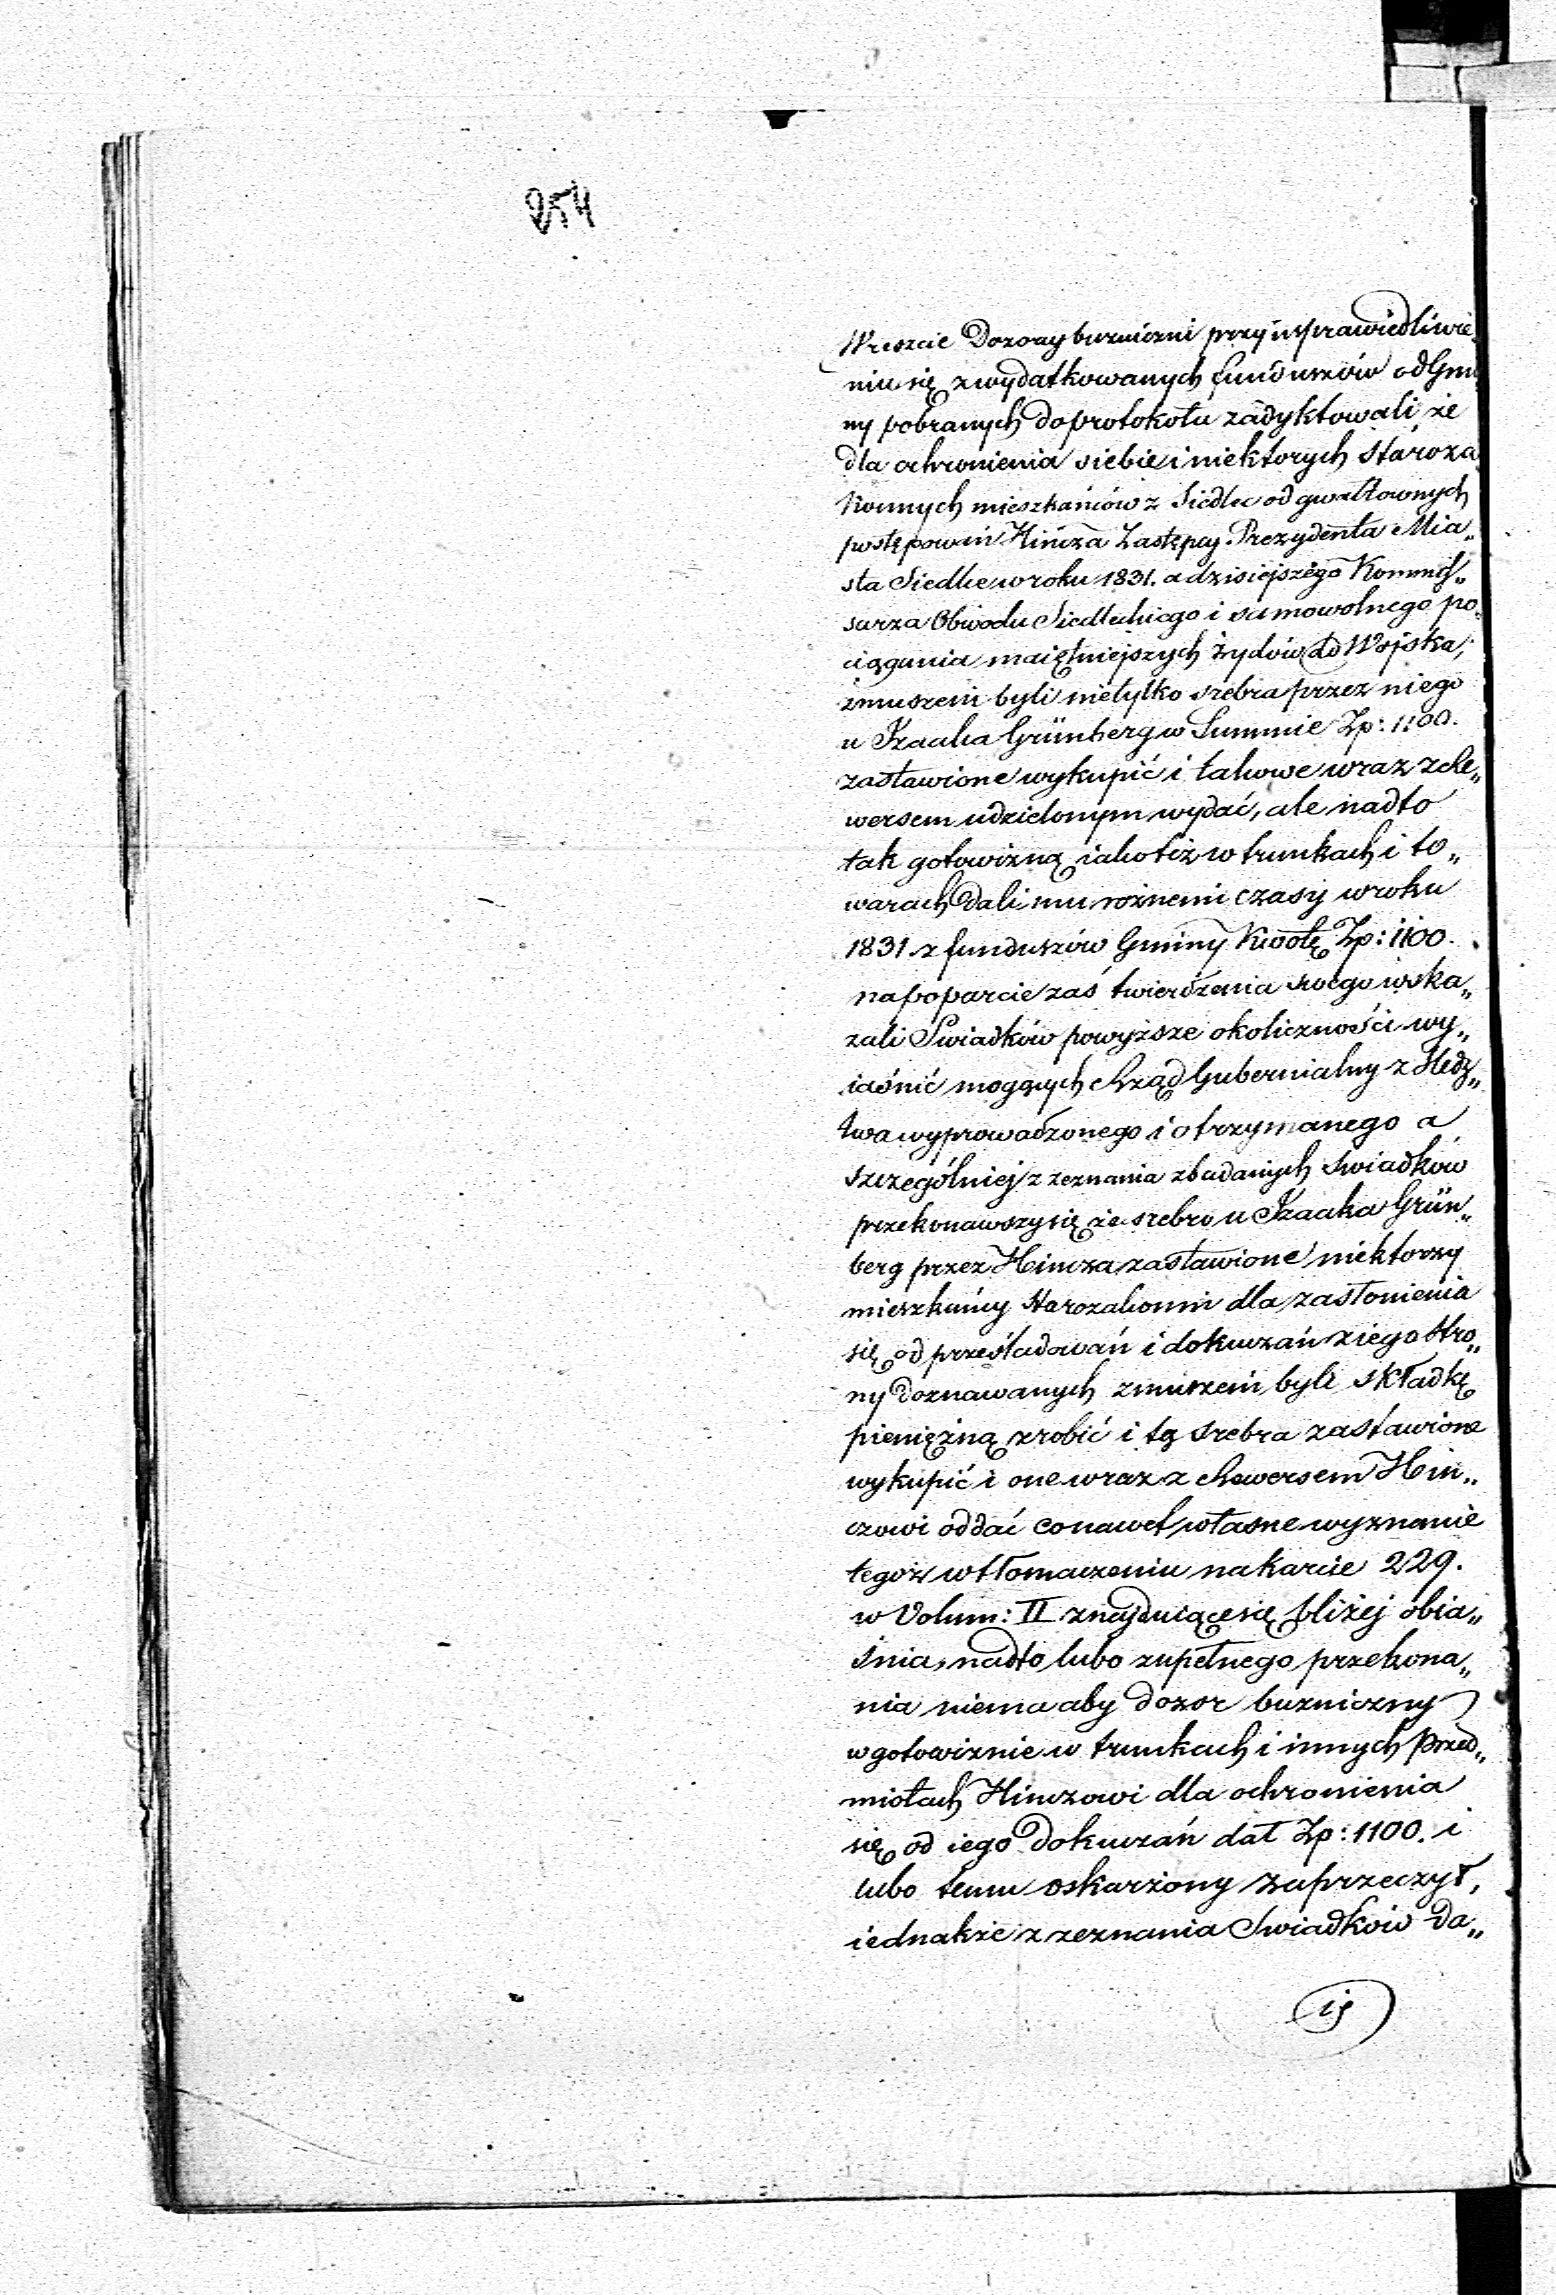 254
Wreszcie Dozory burniczni przy usprawiedliwie„
niu się z wydatkowanych funduszów od Gmi
ny pobranych do protokołu zadyktowali, że
dla ochronienia siebie i niektorych staroza
konnych mieszkańców z Siedlec od gwałtownych
postępowań Hincza Zastępcy Prezydenta Mia„
sta Siedlce w roku 1831. a dzisiejszego Kommis„
sarza Obwodu Siedleckiego i samowolnego po„
ciągania maiętniejszych Żydów do Wojska,
zmuszeni byli nietylko srebra przez niego
u Izaaka Grünberg w Summie Zp: 1100.
zastawione wykupić i takowe wraz z Re„
wersem udzielonym wydać, ale nadto
tak gotowizną iako też w trunkach i to„
warach dali mu rożnemi czasy w roku
1831. z funduszów Gminy Kwotę Zp: 1100.
na poparcie zaś twierdzenia swego wska„
zali Swiadków powyższe okoliczności wy„
iaśnić mogących Rząd Gubernialny z Sledz„
twa wyprowadzonego i otrzymanego a
szczególniej z zeznania zbadanych swiadków
przekonawszy się że srebro u Izaaka Grün„
berg przez Hincza zastawione niektorzy
mieszkańcy starozakonni dla zasłonienia
się od prześladowań i dokuczań z iego stro„
ny doznawanych zmuszeni byli składkę
pieniężną zrobić i tą srebra zastawione
wykupić i one wraz z Rewersem Hin„
czowi oddać co nawet własne wyznanie
tegoż w tłomaczeniu na karcie 229.
w Volum: II znajduiące się bliżej obia„
śnia, nadto lubo zupełnego przekona„
nia niema aby dozor buzniczny
w gotowiznie w trunkach i innych przed„
miotach Hinczowi dla ochronienia
się od iego dokuczań dał Zp: 1100. i
lubo temu oskarżony zaprzeczył,
iednakże z zeznania Swiadków Da„
ię